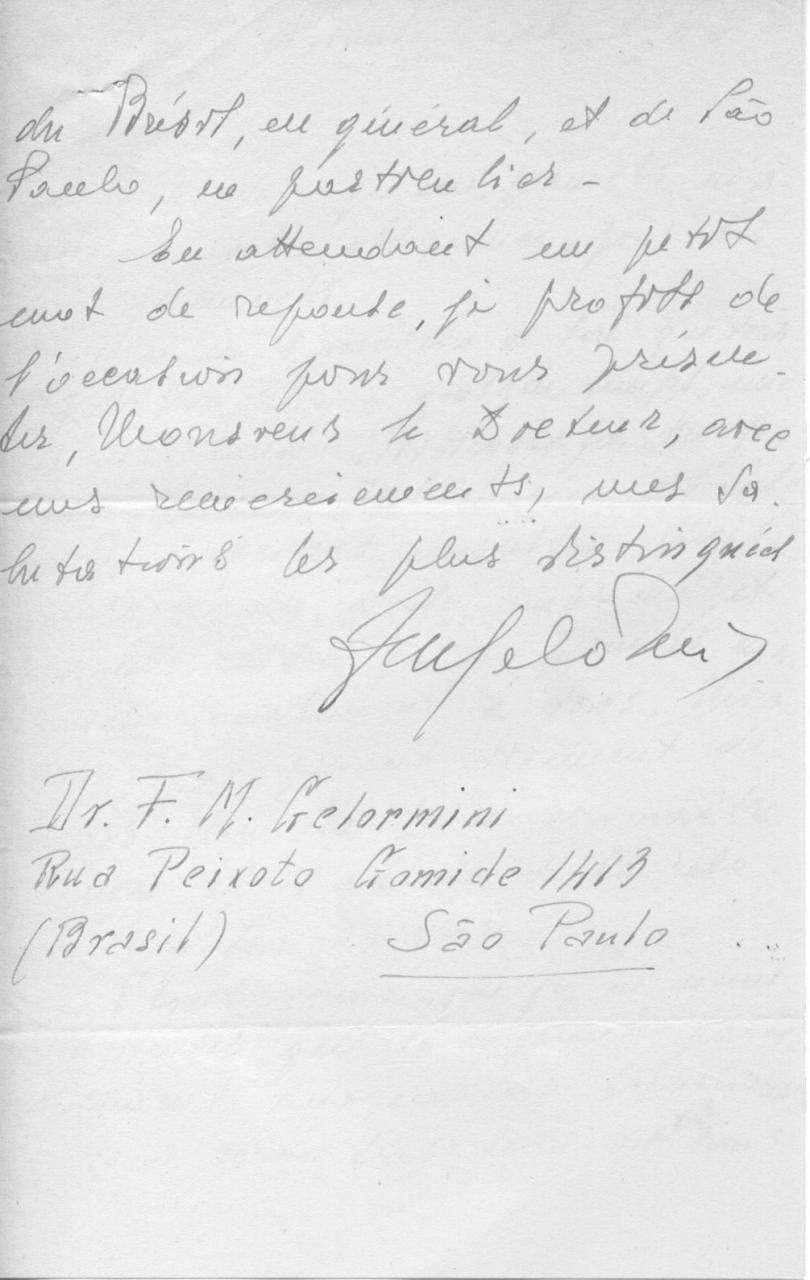 du Brésil, en général, et de São
Paulo, en particulier –
En attendant un petit
mot de reponse, je profite de
l'occasion pour vous présen-
ter, Monsieur le Docteur, avec
mes remerciements, mes sa-
lutations les plus distinguées
Dr. F. M. Gelormini
Rua Peixoto Gomide 1413
(Brasil) São Paulo